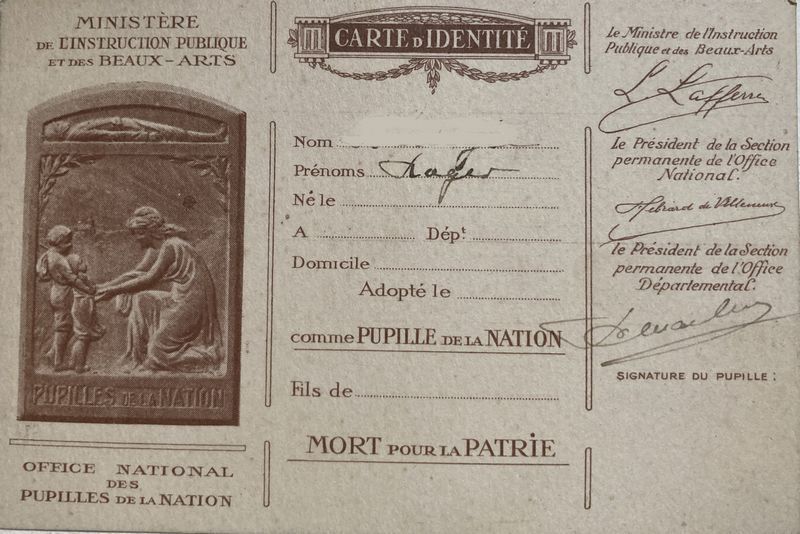 MINISTÈRE
DE L'INSTRUCTION PUBLIQUE
ET DES BEAUX-ARTS
PUPILLES DE LA NATION
OFFICE NATIONAL
DES
PUPILLES DE LA NATION
CARTE D'IDENTITÉ
Nom
Prénoms Roger
Né le
A Dépt
Domicile
Adopté le
comme PUPILLE DE LA NATION
Fils de
MORT POUR LA PATRIE
Le Ministre de l'Instruction
Publique et des Beaux-Arts
L. Lafferre
Le Président de la Section
permanente de l'Office
National.
Hébrard de Villeneuve
le Président de la Section
permanente de l'Office
Départemental.
SIGNATURE DU PUPILLE :